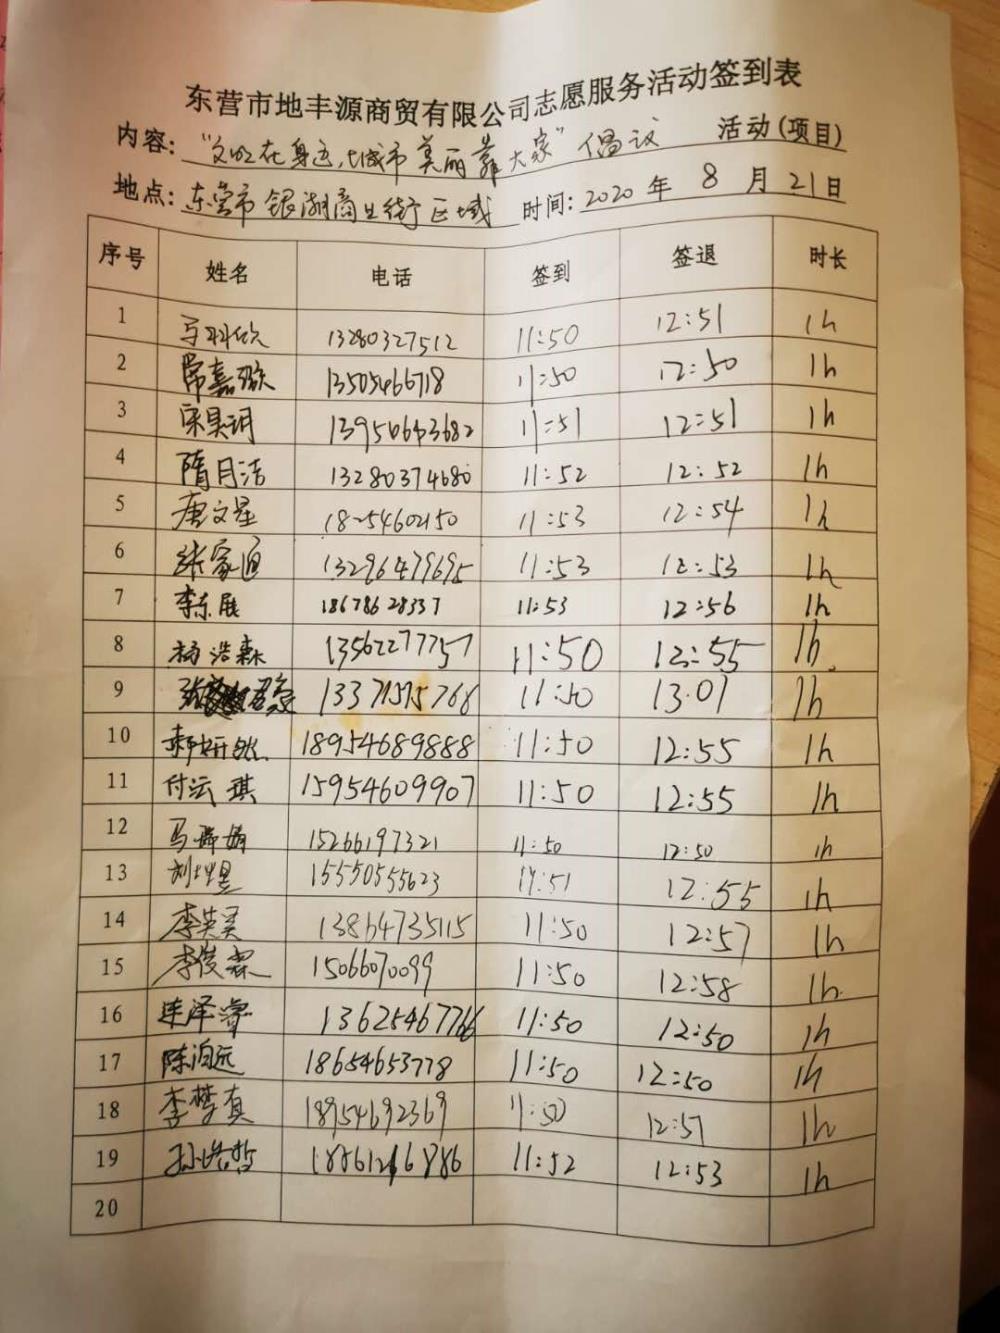 东营市地丰源商贸有限公司志愿服务活动签到表
内容：“文明在身边，城市美丽靠大家”倡议 活动(项目)
地点：东营市银湖商业街区域 时间：2020年8月21日
序号 姓名 电话 签到 签退 时长
1 13280327512 11:50 12:51 1h
2 常嘉 13505466718 11:50 12:50 1h
3 宋昊玥 13950643682 11:51 12:51 1h
4 隋月洁 13280374680 11:52 12:52 1h
5 唐文星 18254602150 11:53 12:54 1h
6 张家通 13296479695 11:53 12:53 1h
7 李东展 18678628337 11:53 12:56 1h
8 杨浩森 13562277757 11:50 12:55 1h.
9 13371515768 11:50 13:01 1h
10 郝妍然 18954689888 11:50 12:55 1h
11 付沄琪 15954609907 11:50 12:55 1h
12 马 15266197321 11:50 12:50 1h
13 刘 15550555623 11:51 12:55 1h
14 李英 13864735115 11:50 12:57 1h
15 李俊霖 15066070099 11:50 12:58 1h
16 连泽睿 13625467766 11:50 12:50 1h
17 陈洎远 18654653778 11:50 12:50 1h
18 李梦真 18954692369 11:50 12:57 1h
19 孙浩哲 11:52 12:53 1h
20